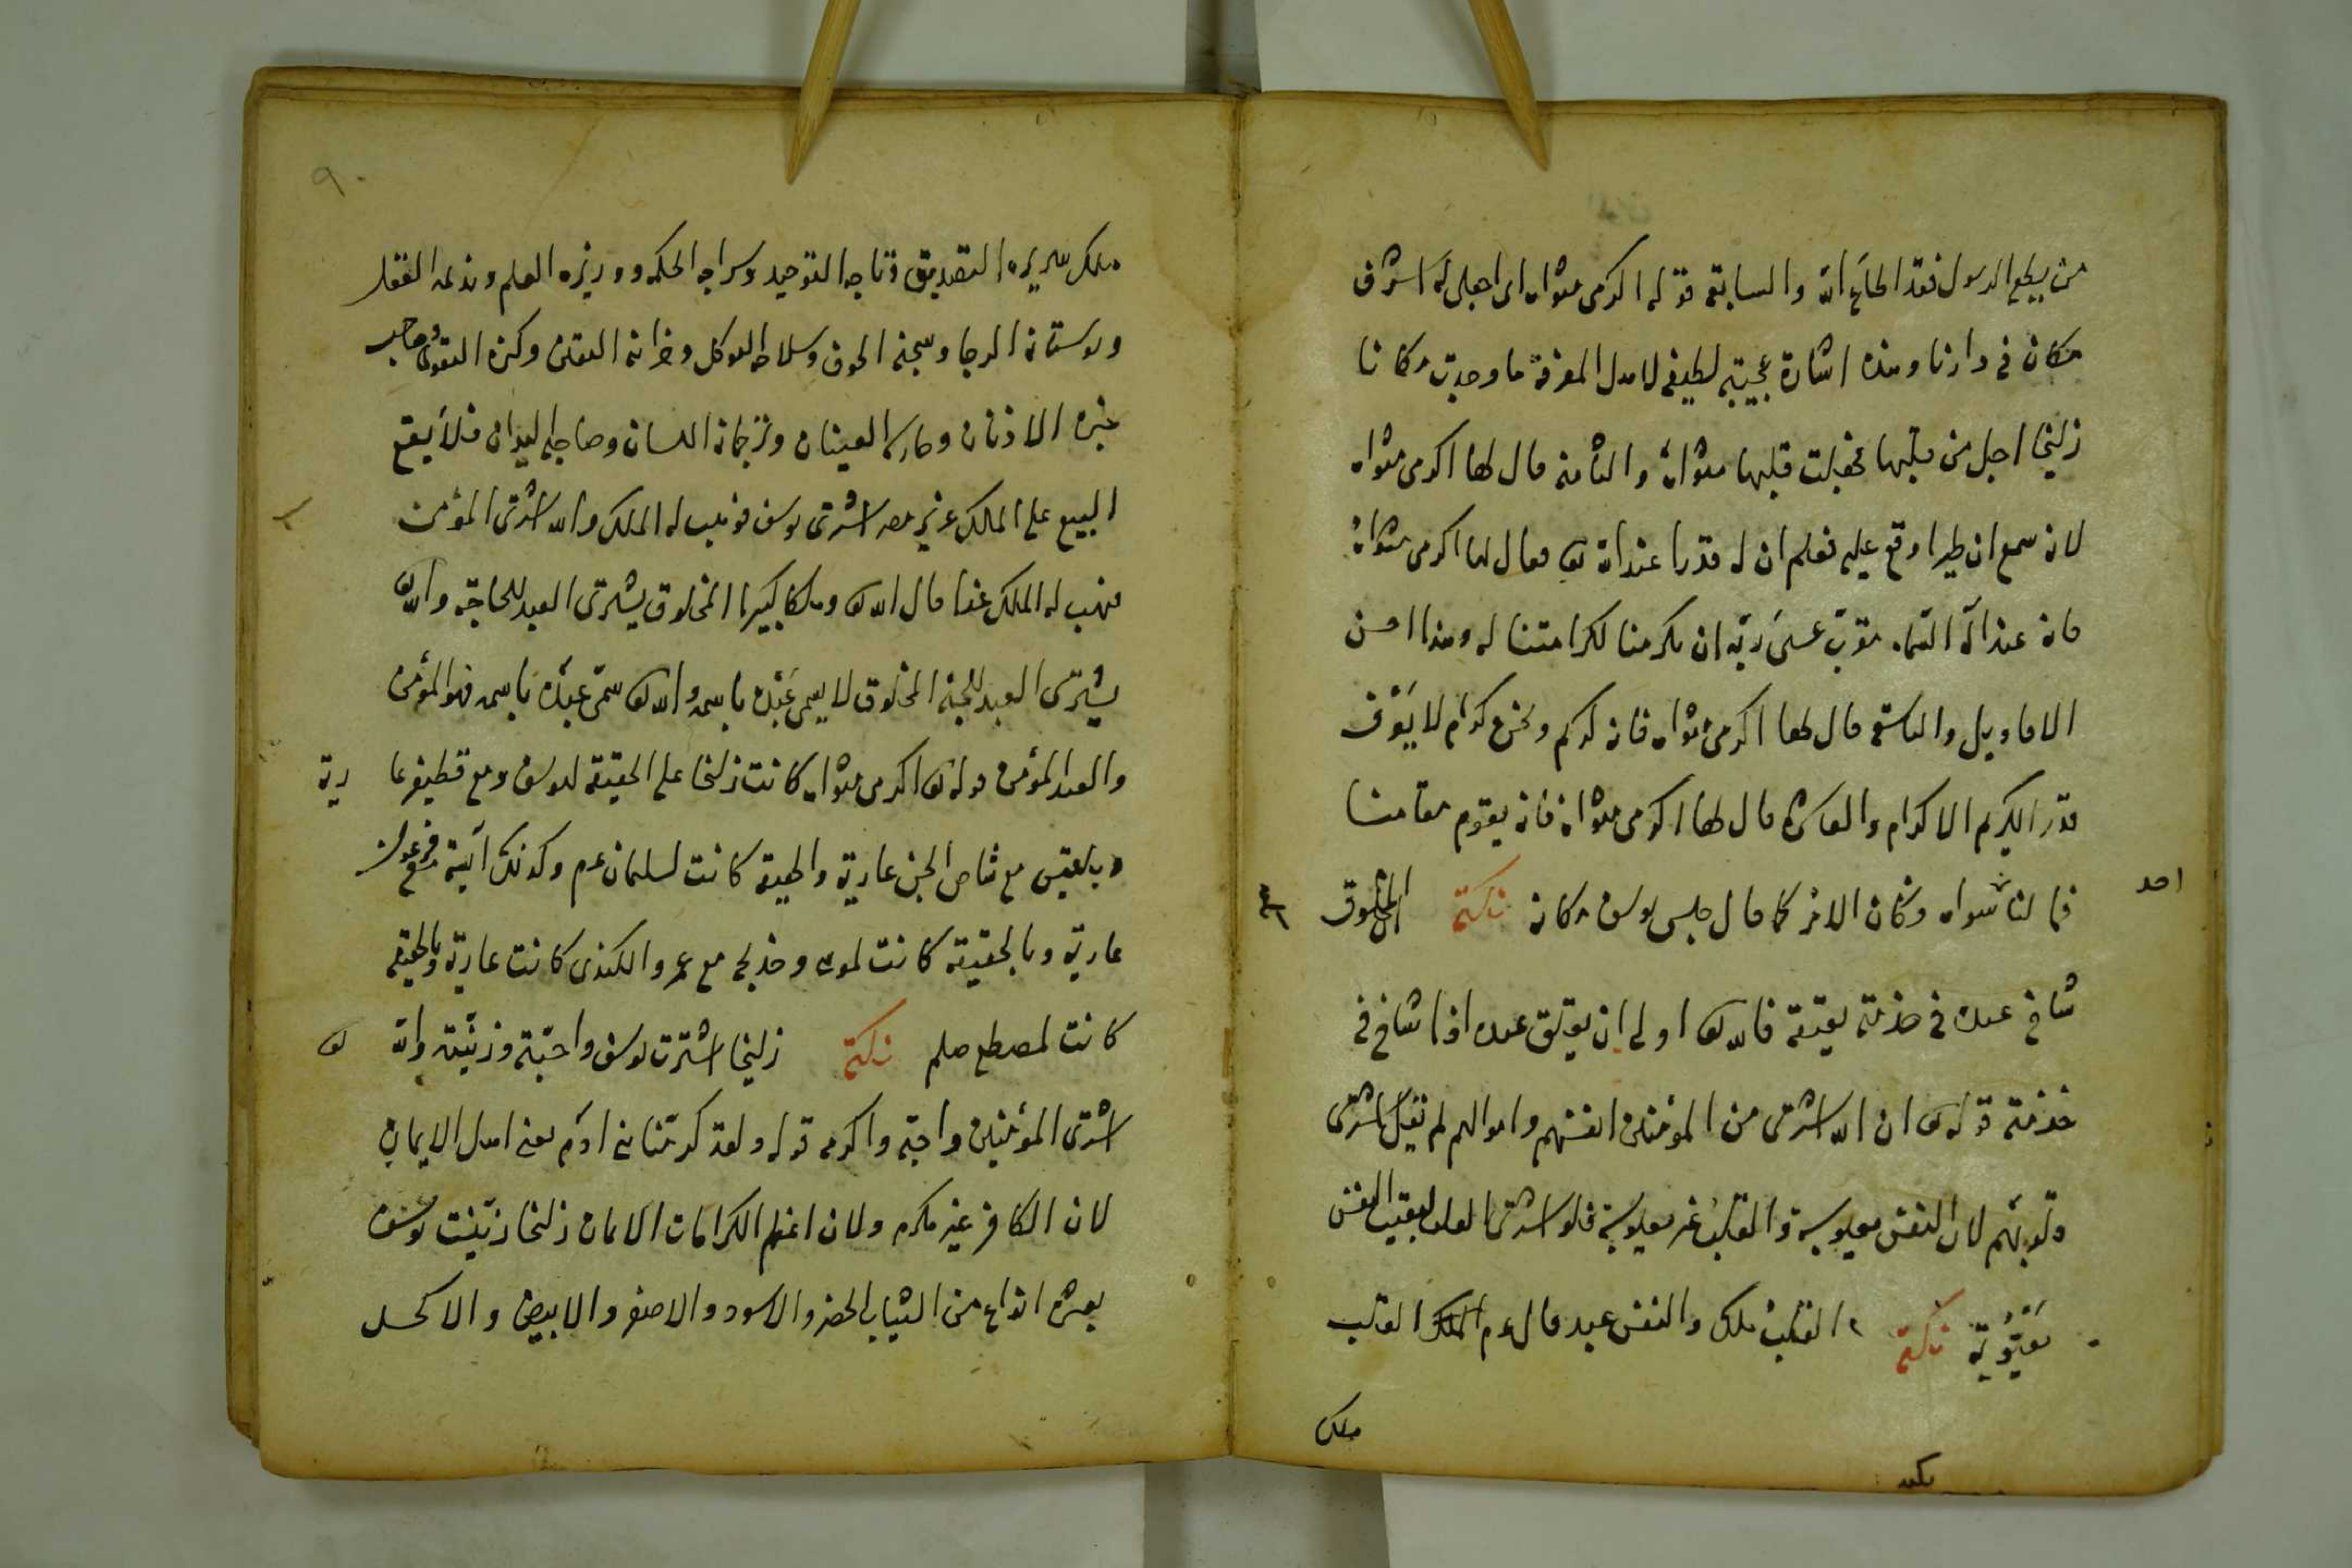 من يطع الرسول فقد اطاع الله والسابعة قوله اكرمى مثواه اى اجعلى له اشرف
مكان فى دارنا وهذه اشارة عجيبة لطيفة لاهل المعرفة ما وجدت مكانا
زليخا اجل من قلبها فجعلت قلبها مثواه والثامنة قال لها اكرمى مثواه
لانه سمع ان طيرا وقع عليه فعلم ان له قدرا عند الله تعا فقال لها اكرمى مثواه
فانه عند اله السماء مقرب عسى ربه ان يكرمنا لكرامتنا له وهذا احسن
الاقاويل والتاسعة قال لها اكرمى مثواه فانه كريم ونحن كرام لا يعرف
قدر الكريم الا كرام والعاشرة قال لها اكرمى مثواه فانه يقوم مقامنا
فما لنا سواه وكان الامر كما قال جلس يوسف مكانه نكتة المخلوق
احد
شاخ عبده فى خدمته يعتقه فالله تعا اولى ان يعتق عبده اذا شاخ فى
خدمته قوله تعا ان الله اشترى من المؤمنين انفسهم واموالهم لم يقل اشترى
قلوبهم لان النفس معيوبة والقلب غير معيوبة فلو اشترى القلب لبقيت النفس
معيوبة نكتة القلب ملك والنفس عبد قال عم الملك القلب
ملك
٩٠
ملك سريره التصديق وتاجه التوحيد وسراجه الحكمة ووزيره العلم ونديمه العقل
وبوستانه الرجا وسجنه الخوف وسلاحه التوكل وخزانته اليقين وكنزه التقوى وصاحب
خبره الاذنان وحارسه العينان وترجمانه اللسان وحاجبه اليدان فلا يقع
البيع على الملك عزيز مصر اشترى يوسف فوهب له الملك والله اشترى المؤمن
فيهب له الملك غدا قال الله تعا وملكا كبيرا المخلوق يشترى العبد للحاجة والله تعا
يشترى العبد للجنة المخلوق لا يسمى عبده باسمه والله تعا سمى عبده باسمه فهو المؤمن
والعبد المؤمن قوله تعا اكرمى مثواه كانت زليخا على الحقيقة ليوسف ومع قطيفر عا رية
وبلقيس مع شاص الجن عارية والحقيقة كانت لسليمان عم وكذلك آسية مع فرعون
عارية وبالحقيقة كانت لموسى وخديجة مع عمرو الكندى كانت عارية وبالحقيقة
كانت لمصطفى صلعم نكتة زليخا اشترت يوسف واحبته وزينته والله تعا
اشترى المؤمنين واحبه واكرمه قوله ولقد كرمنا بنى ادم يعنى اهل الايمان
لان الكافر غير مكرم ولان اعظم الكرامات الايمان زليخا زينت يوسف
بعشرة انواع من الثياب الخضر والاسود والاصفر والابيض والاكحل